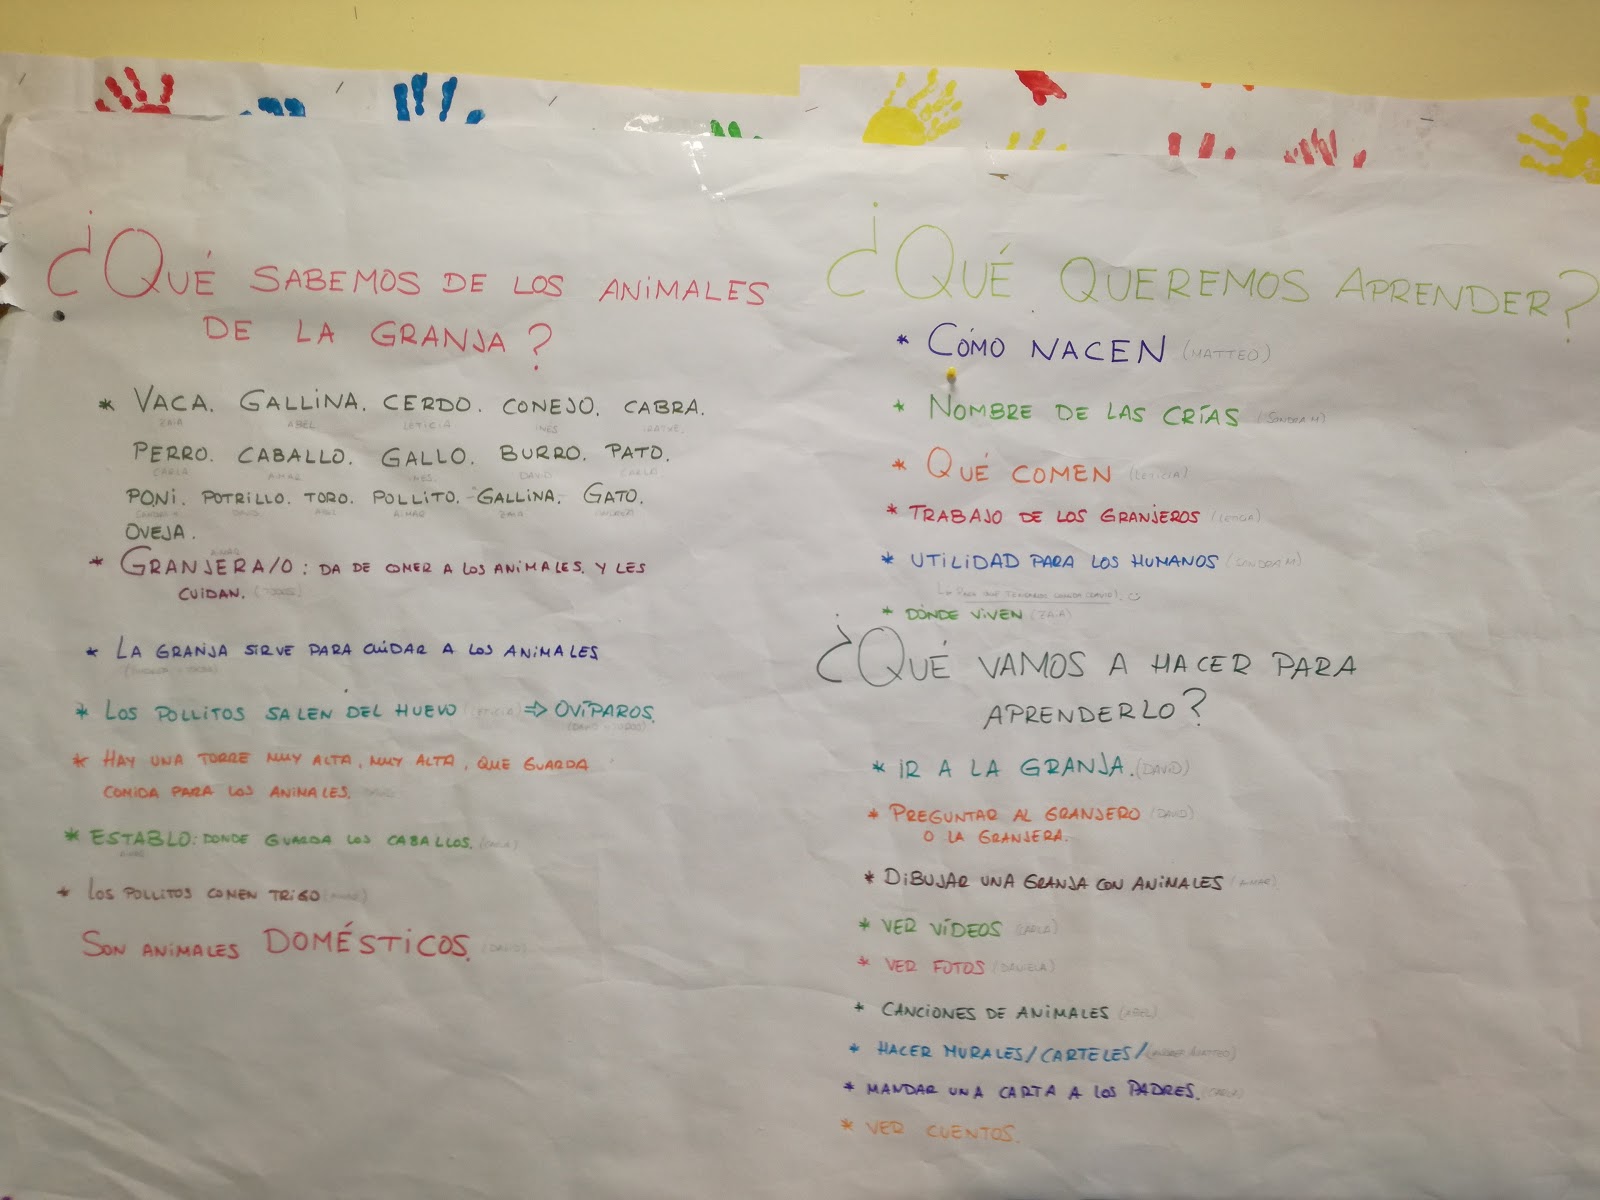 ¿QUÉ SABEMOS DE LOS ANIMALES
DE LA GRANJA?
* VACA. GALLINA. CERDO. CONEJO. CABRA.
ZAIA ABEL LETICIA INES
PERRO. CABALLO. GALLO. BURRO. PATO.
CARLA AIMAR INES. DAVID CARLA
PONI. POTRILLO. TORO. POLLITO. GALLINA. GATO.
DAVID. ABEL AIMAR ZAIA
OVEJA.
AIMAR
* GRANJERA/O: DA DE COMER A LOS ANIMALES. Y LES
CUIDAN. (TODOS)
* LA GRANJA SIRVE PARA CUIDAR A LOS ANIMALES
* LOS POLLITOS SALEN DEL HUEVO (LETICIA) => OVÍPAROS.
(DAVID - TODOS)
* HAY UNA TORRE MUY ALTA, MUY ALTA, QUE GUARDA
COMIDA PARA LOS ANIMALES. DAVID
* ESTABLO: DONDE GUARDA LOS CABALLOS. (CARLA)
* LOS POLLITOS COMEN TRIGO (AIMAR)
SON ANIMALES DOMÉSTICOS. (DAVID)
¿QUÉ QUEREMOS APRENDER?
* CÓMO NACEN (MATTEO)
* NOMBRE DE LAS CRÍAS (SONDRA M)
* QUÉ COMEN (LETICIA)
* TRABAJO DE LOS GRANJEROS (LETICIA)
* UTILIDAD PARA LOS HUMANOS (SONDRA M)
PARA QUE TENGAMOS COMIDA (DAVID).
* DÓNDE VIVEN (ZAIA)
¿QUÉ VAMOS A HACER PARA
APRENDERLO?
* IR A LA GRANJA. (DAVID)
* PREGUNTAR AL GRANJERO (DAVID)
O LA GRANJERA.
* DIBUJAR UNA GRANJA CON ANIMALES (AIMAR)
* VER VÍDEOS (CARLA)
* VER FOTOS (DANIELA)
* CANCIONES DE ANIMALES (ABEL)
* HACER MURALES/CARTELES/
* MANDAR UNA CARTA A LOS PADRES. (CARLA)
* VER CUENTOS.